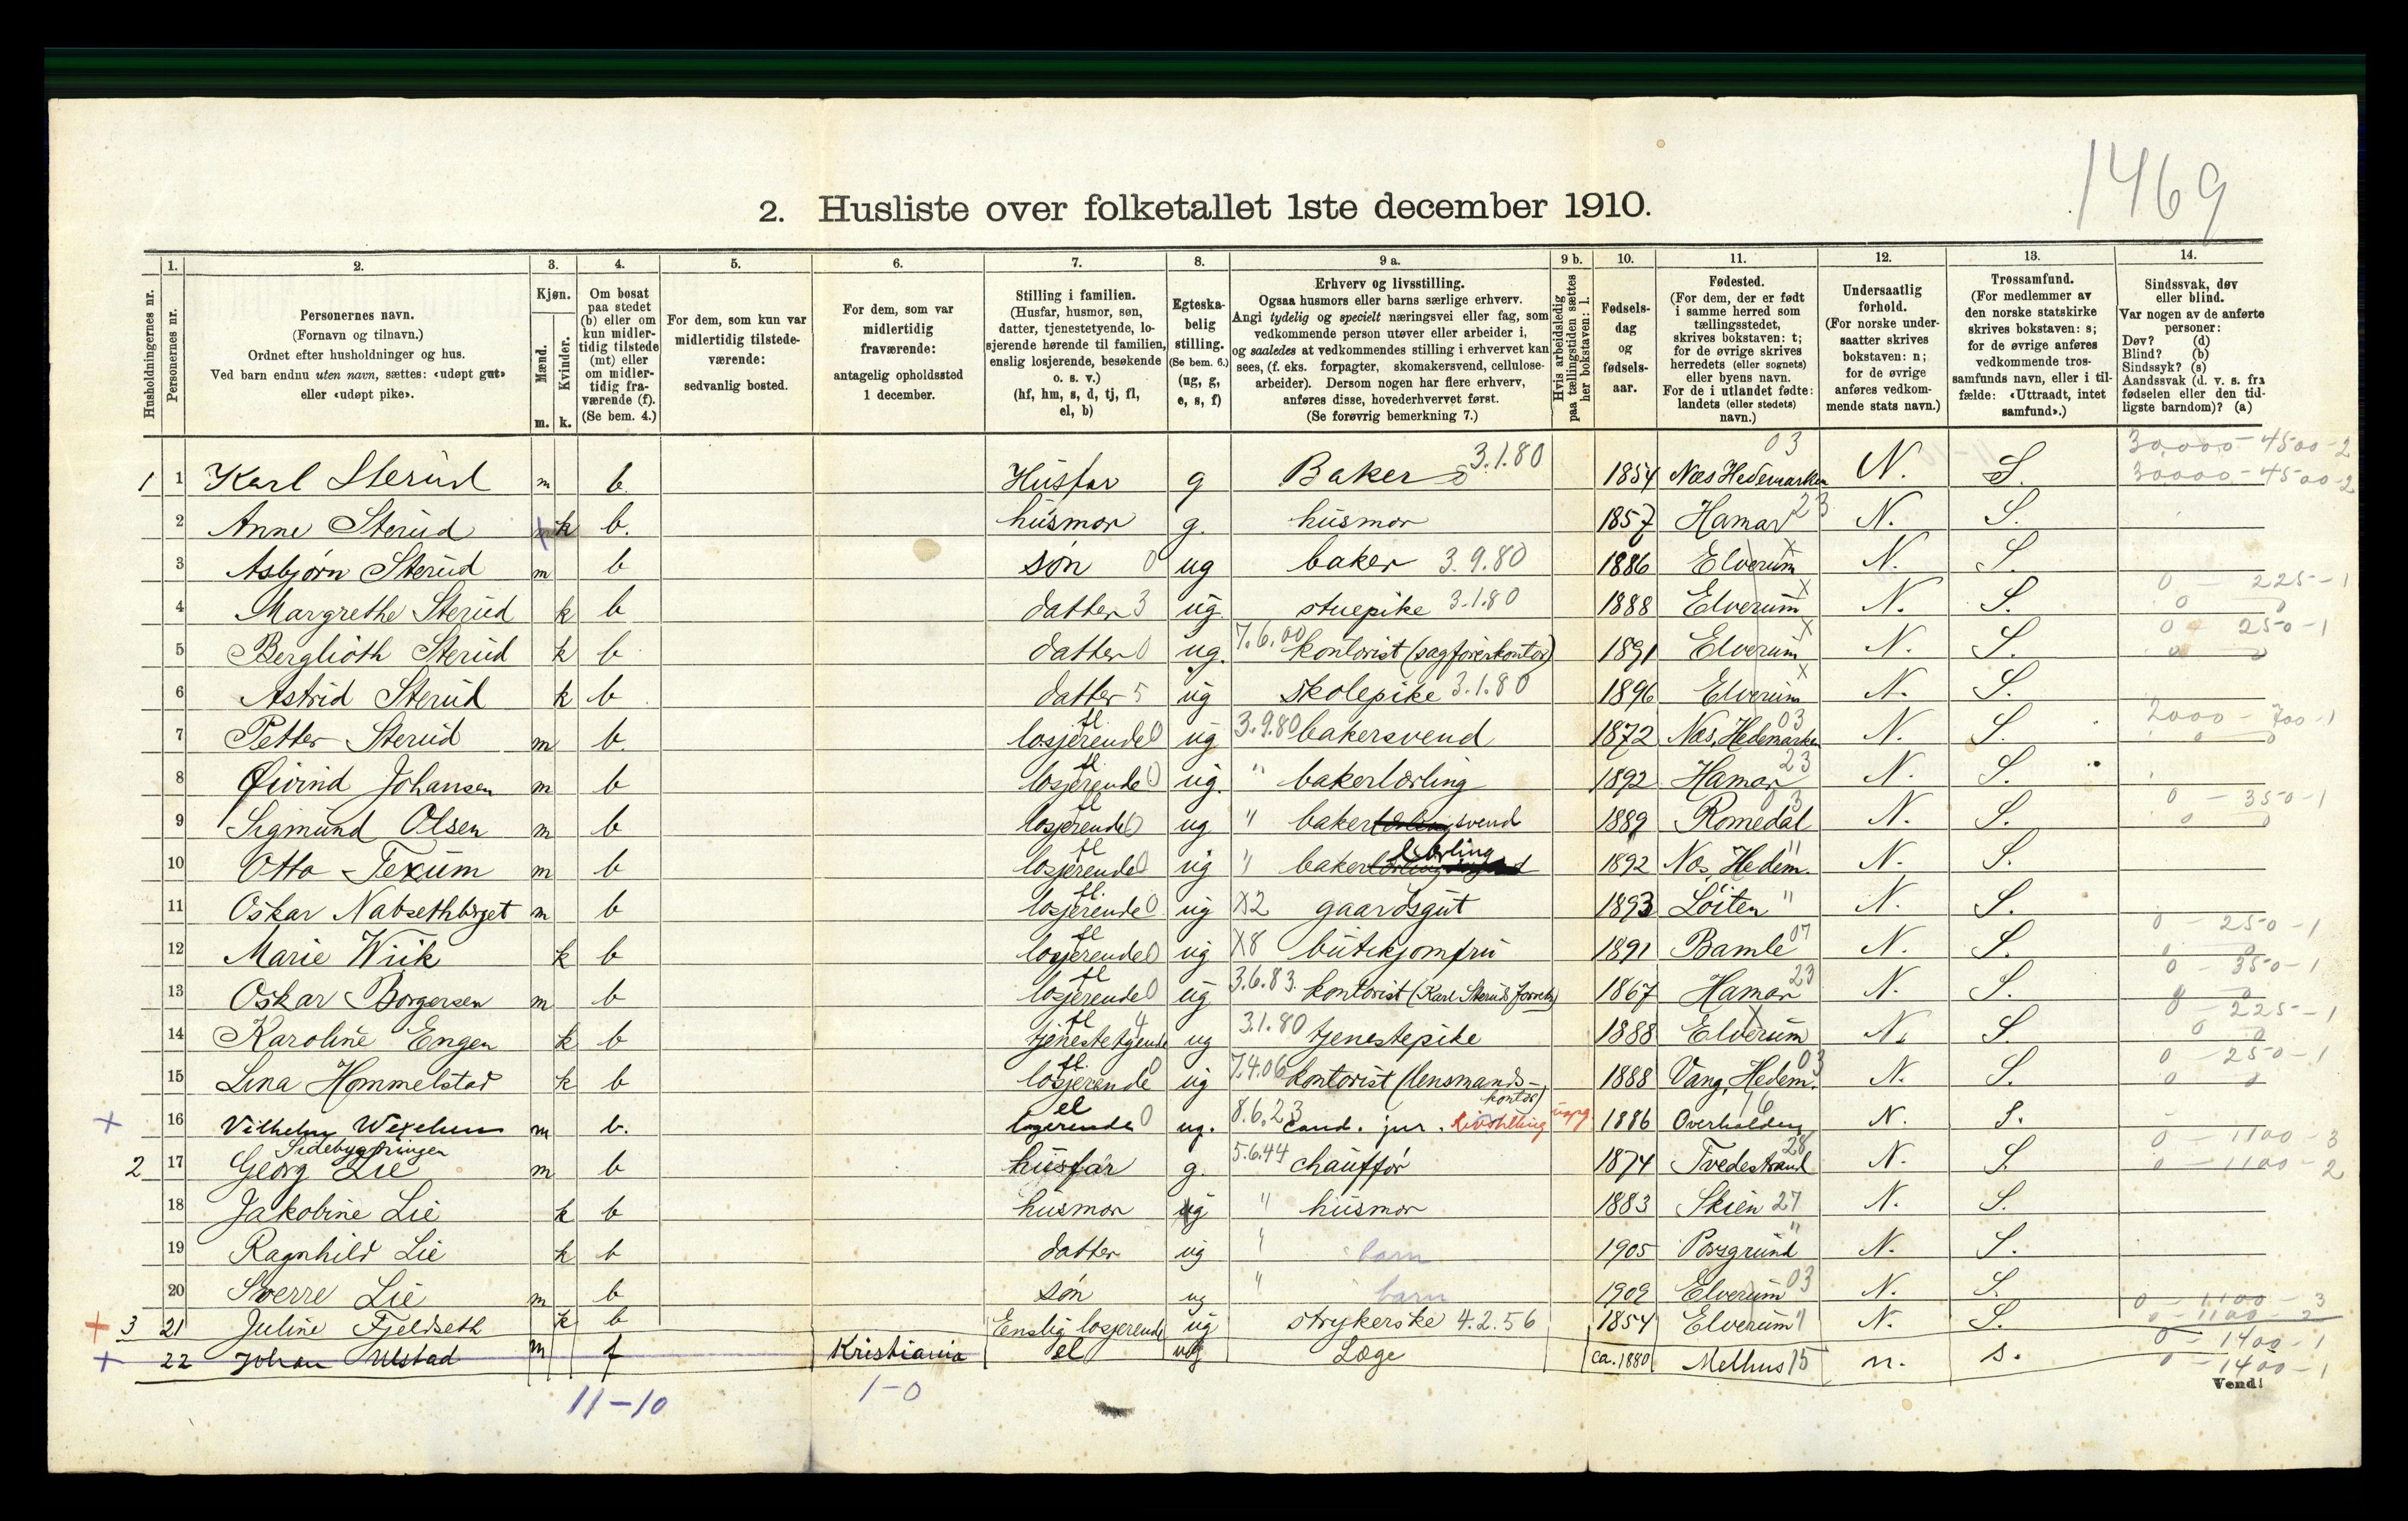 1469
2. Husliste over folketallet 1ste december 1910.
Husholdningernes nr.
1. Personernes nr.
2. Personernes navn. (Fornavn og tilnavn.) Ordnet efter husholdninger og hus. Ved barn endnu uten navn, sættes: «udøpt gut» eller «udøpt pike».
3. Kjøn. Mænd. m. Kvinder. k.
4. Om bosat paa stedet (b) eller om kun midlertidig tilstede (mt) eller om midlertidig fraværende (f). (Se bem. 4.)
5. For dem, som kun var midlertidig tilstedeværende: sedvanlig bosted.
6. For dem, som var midlertidig fraværende: antagelig opholdssted 1 december.
7. Stilling i familien. (Husfar, husmor, søn, datter, tjenestetyende, losjerende hørende til familien, enslig losjerende, besøkende o. s. v.) (hf, hm, s, d, tj, fl, el, b)
8. Egteskabelig stilling. (Se bem. 6.) (ug, g, e, s, f)
9 a. Erhverv og livsstilling. Ogsaa husmors eller barns særlige erhverv. Angi tydelig og specielt næringsvei eller fag, som vedkommende person utøver eller arbeider i, og saaledes at vedkommendes stilling i erhvervet kan sees, (f. eks. forpagter, skomakersvend, cellulosearbeider). Dersom nogen har flere erhverv, anføres disse, hovederhvervet først. (Se forøvrig bemerkning 7.)
9 b. Hvis arbeidsledig paa tællingstiden sættes her bokstaven: l.
10. Fødselsdag og fødselsaar.
11. Fødested. (For dem, der er født i samme herred som tællingsstedet, skrives bokstaven: t; for de øvrige skrives herredets (eller sognets) eller byens navn. For de i utlandet fødte: landets (eller stedets) navn.)
12. Undersaatlig forhold. (For norske undersaatter skrives bokstaven: n; for de øvrige anføres vedkommende stats navn.)
13. Trossamfund. (For medlemmer av den norske statskirke skrives bokstaven: s; for de øvrige anføres vedkommende trossamfunds navn, eller i tilfælde: «Uttraadt, intet samfund».)
14. Sindssvak, døv eller blind. Var nogen av de anførte personer: Døv? (d) Blind? (b) Sindssyk? (s) Aandssvak (d. v. s. fra fødselen eller den tidligste barndom)? (a)
30,000 - 4500 - 2
1 1 Karl Sterud m b. Husfar g Baker 3.1.80 1854 Næs Hedemarken 03 N. S. 30000 - 4500 - 2
2 Anne Sterud k b. husmor g. husmor 1857 Hamar 23 N. S.
3 Asbjørn Sterud m b søn 0 ug baker 3.9.80 1886 Elverum x N. S.
4 Margrethe Sterud k b datter 3 ug. stuepike 3.1.80 1888 Elverum x N. S. 0 - 225 - 1
5 Berglioth Sterud k b datter 0 ug. 7.6.00 kontorist (sagførerkontor) 1891 Elverum x N. S. 0 - 250 - 1
6 Astrid Sterud k b datter 5 ug skolepike 3.1.80 1896 Elverum x N. S.
7 Petter Sterud m b. fl losjerende 0 ug 3.9.80 bakersvend 1872 Næs, Hedemarken 03 N. S. 2000 - 700 - 1
8 Øivind Johansen m b fl losjerende 0 ug. " bakerlærling 1892 Hamar 23 N. S.
9 Sigmund Olsen m b fl losjerende 0 ug " baker svend 1889 Romedal 03 N. S. 0 - 350 - 1
10 Otto Texum m b fl losjerende 0 ug " baker lærling 1892 Næs, Hedem. " N. S.
11 Oskar Nabsethberget m b fl. losjerende 0 ug X2 gaardsgut 1893 Löiten " N. S.
12 Marie Wiik k b fl losjerende 0 ug X8 butikjomfru 1891 Bamle 07 N. S. 0 - 250 - 1
13 Oskar Borgersen m b fl losjerende 0 ug 3.6.83. kontorist (Karl Steruds forretn) 1867 Hamar 23 N. S. 0 - 350 - 1
14 Karoline Engen k b tjenestetyende ug 3.1.80 tjenestepike 1888 Elverum x N. S. 0 - 225 - 1
15 Lina Hommelstad k b fl. losjerende 0 ug 7.4.06 kontorist (lensmandskontor) 1888 Vang, Hedem. 03 N. S. 0 - 250 - 1
+ 16 Vilhelm Wexelsen m b. el logerende 0 ug. 8.6.23 cand. jur. Livsstilling uopg. 1886 Overhalden 16 N. S.
Sidebygningen
2 17 Georg Lie m b husfar g. 5.6.44 chauffør 1874 Tvedestrand 28 N. S. 0 - 1100 - 3
0 - 1100 - 2
18 Jakobine Lie k b husmor g " husmor 1883 Skien 27 N. S.
19 Ragnhild Lie k b datter ug " barn 1905 Porsgrund " N. S.
20 Sverre Lie m b søn ug " barn 1909 Elverum 03 N. S.
+ 3 21 Juline Fjeldseth k b Enslig losjerende ug strykerske 4.2.56 1854 Elverum " N. S. 0 - 1100 - 3
0 - 1100 - 2
+ 22 Johan Ulstad m f Kristiania el ug Læge ca. 1880 Melhus 15 n. s. 0 - 1400 - 1
0 - 1400 - 1
11-10 1-0
Vend!